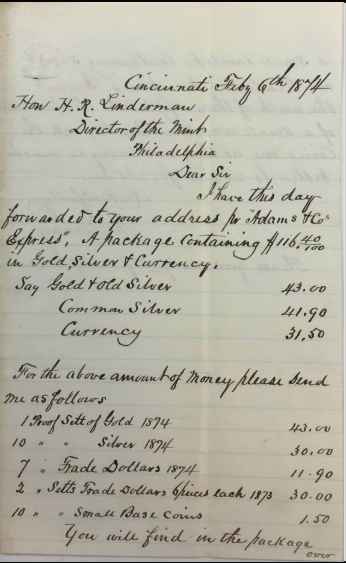 Cincinnati Feby 6th 1874
Hon H. R. Linderman
Director of the Mint
Philadelphia
Dear Sir
I have this day
forwarded to your address pr "Adams & Cos
Express", A package containing $116 40/100
in Gold, Silver & Currency.
Say Gold & old Silver 43.00
Common Silver 41.90
Currency 31,50
For the above amount of Money please send
me as follows
1 Proof Sett of Gold 1874 43.00
10 " " Silver 1874 30.00
7 " Trade Dollars 1874 11.90
2 " Setts Trade Dollars 6 pieces each 1873 30.00
10 " " Small Base Coins 1.50
You will find in the package
over